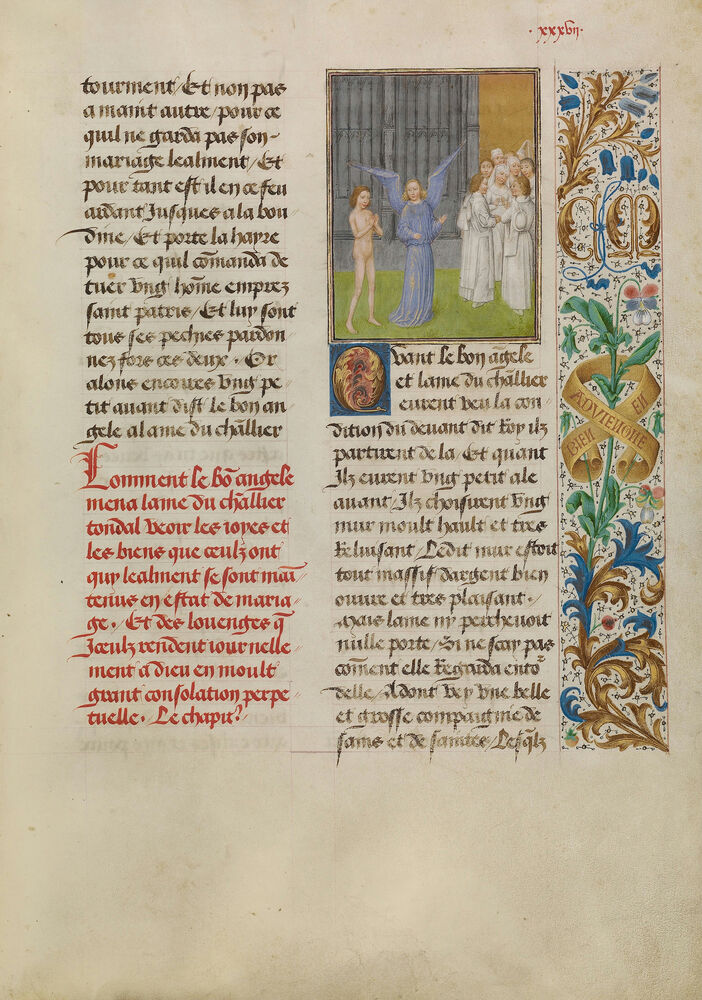 ·xxxvii·
tourment / Et non pas
a maint autre / pour ce
quil ne garda pas son-
mariage lealment / Et
pour tant est il en ce feu
ardant Jusques a la bou
dine / Et porte la hayre
pour ce quil cõmanda de
tuer vng hõme emprez
saint patris / Et luy sont
tous ses pechies pardon
nez fors ces deux · Or
alons encores vng pe-
tit auant dist le bon an
gele a lame du chĩlier
Comment le bõ angele
mena lame du chĩlier
tondal veoir les ioyes et
les biens que ceulz ont
quy lealment se sont mai~
tenus en estat de maria
ge · Et des louenges q̃
Iceulz rendent iournelle
ment a dieu en moult
grant consolation perpe
tuelle · Le chapit͛
Quant le bon ãgele
et lame du chĩlier
eurent veu la con
dition du deuant dit Roy ilz
partirent de la / Et quant
Ilz eurent vng petit ale
auant / Ilz choisirent vng
mur moult hault et tres
Reluisant / Ledit mur estoit
tout massif dargent bien
ouure et tres plaisant ·
Mais lame ny percheuoit
nulle porte / Si ne scay pas
cõment elle Regarda ento͛
delle / Adont vey vne belle
et grosse compaignie de
sains et de saintes / Lesq̃lz
CM
BIEN
EN
ADVIENGNE